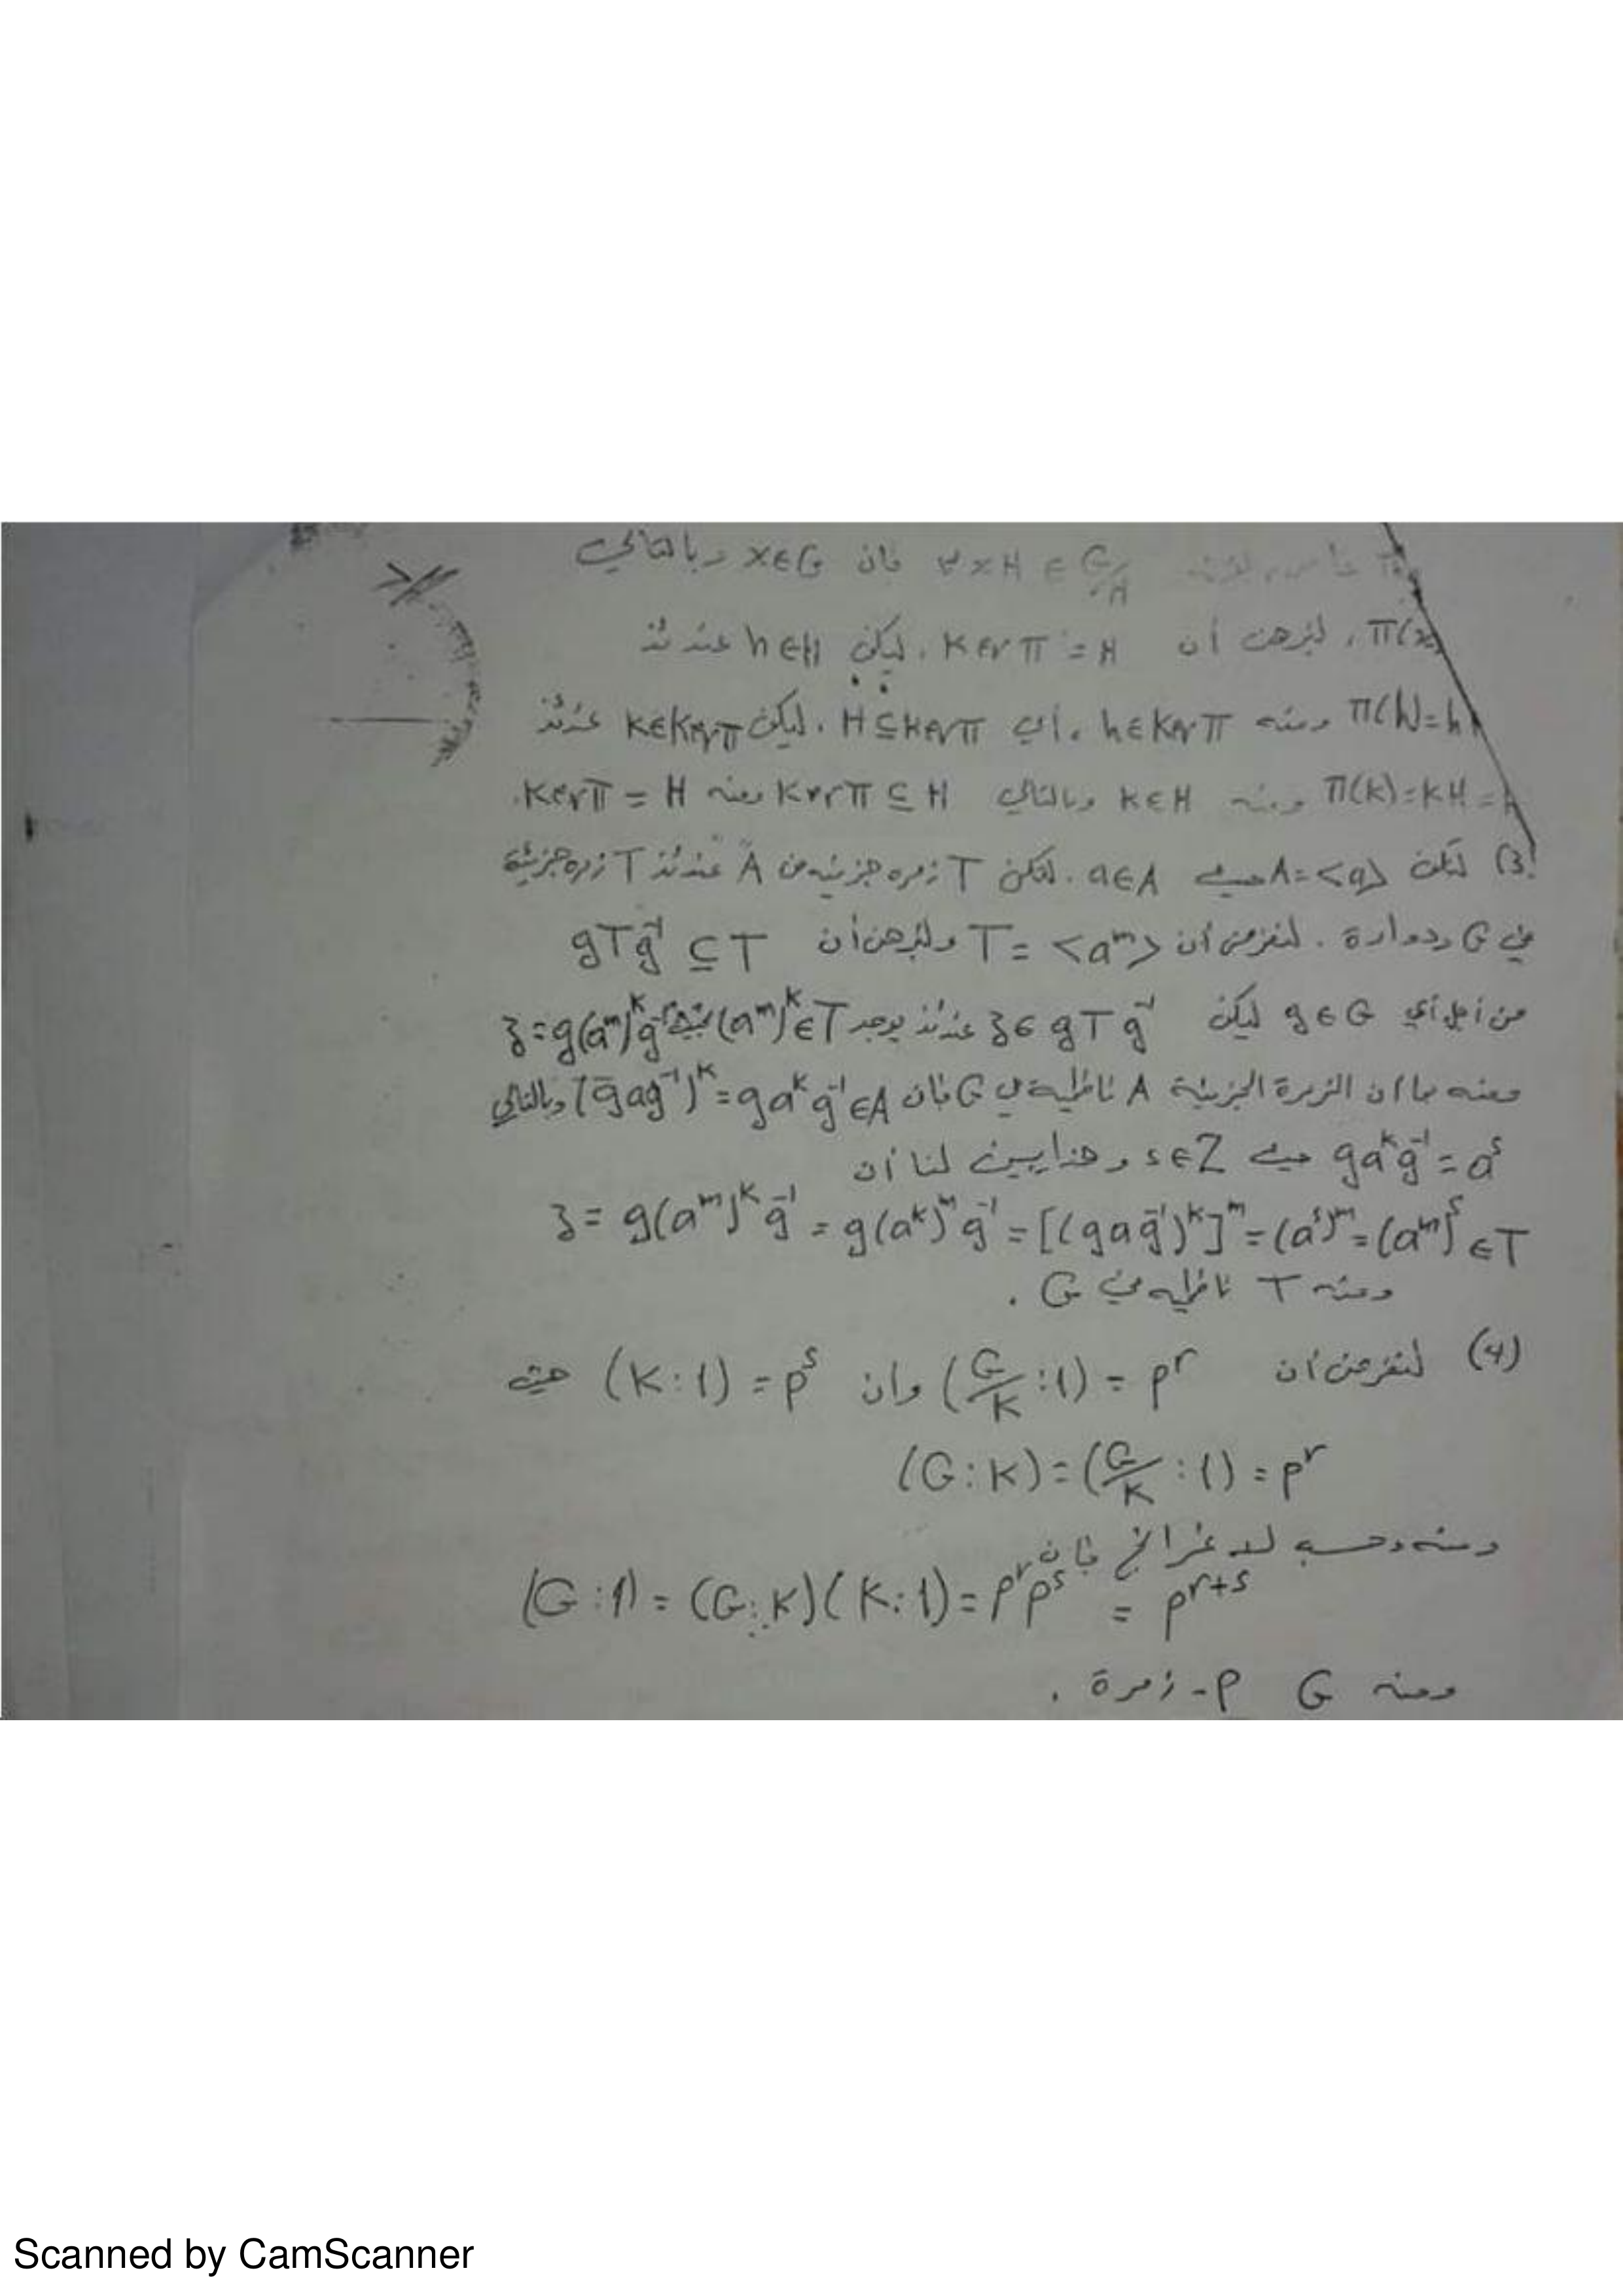 ∀ xH ∈ G/H فان x∈G وبالتالي
π(x) ، لنبرهن أن Ker π = H . ليكن h∈H عندئذ
π(h)=h ومنه h∈Ker π ، أي H⊆Ker π . ليكن k∈Ker π عندئذ
π(k)=kH= ومنه k∈H وبالتالي Ker π ⊆ H ومنه Ker π = H .
(3 لتكن A=<a> حيث a∈A . لتكن T زمره جزئيه من A عندئذ T زمره جزئية
في G دوارة . لنفرض أن T = <aᵐ> ولنبرهن أن gTg⁻¹ ⊆ T
من أجل أي g∈G ليكن ʒ∈gTg⁻¹ عندئذ يوجد (aᵐ)ᵏ∈T بحيث ʒ=g(aᵐ)ᵏg⁻¹
ومنه بما أن الزمرة الجزئية A ناظميه في G فان (gag⁻¹)ᵏ=gaᵏg⁻¹∈A وبالتالي
gaᵏg⁻¹=aˢ حيث s∈Z وهذا يبين لنا أن
ʒ= g(aᵐ)ᵏg⁻¹ = g(aᵏ)ᵐg⁻¹ = [(gag⁻¹)ᵏ]ᵐ=(aˢ)ᵐ=(aᵐ)ˢ∈T
ومنه T ناظميه في G .
(4) لنفرض أن (G/K :1) = pʳ وان (K:1) = pˢ حيث
(G:K)=(G/K :1) = pʳ
ومنه وحسب لاغرانج فان
(G:1) = (G:K)(K:1)= pʳpˢ = pʳ⁺ˢ
ومنه G p- زمرة .
Scanned by CamScanner